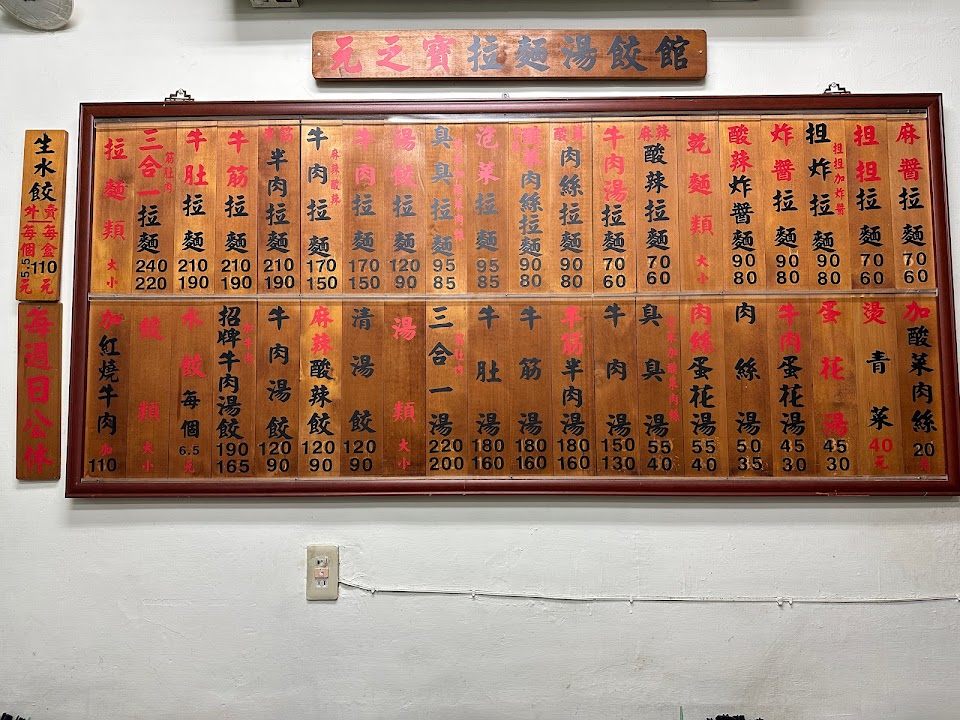 元之寶拉麵湯餃館
生水餃
外賣
每個5.5元
每盒110元
每週日公休
拉麵類 大 小
三合一拉麵 筋肚肉 240 220
牛肚拉麵 210 190
牛筋拉麵 210 190
半筋半肉拉麵 210 190
牛肉拉麵 麻辣酸辣 170 150
牛肉拉麵 170 150
湯餃拉麵 120 90
臭臭拉麵 95 85
泡菜拉麵 95 85
肉絲拉麵 90 80
酸辣肉絲拉麵 90 80
牛肉湯拉麵 70 60
麻辣酸辣拉麵 70 60
乾麵類 大 小
酸辣炸醬麵 90 80
炸醬拉麵 90 80
担炸拉麵 担担加炸醬 90 80
担担拉麵 70 60
麻醬拉麵 70 60
加紅燒牛肉 加110
水餃每個6.5元
招牌牛肉湯餃 190 165
牛肉湯餃 120 90
麻辣酸辣餃 120 90
清湯餃 120 90
湯類 大 小
三合一湯 筋肚肉 220 200
牛肚湯 180 160
牛筋湯 180 160
半筋半肉湯 180 160
牛肉湯 150 130
臭臭湯 55 40
肉絲蛋花湯 55 40
肉絲湯 50 35
牛肉蛋花湯 45 30
蛋花湯 45 30
燙青菜 40元
加酸菜肉絲 20元